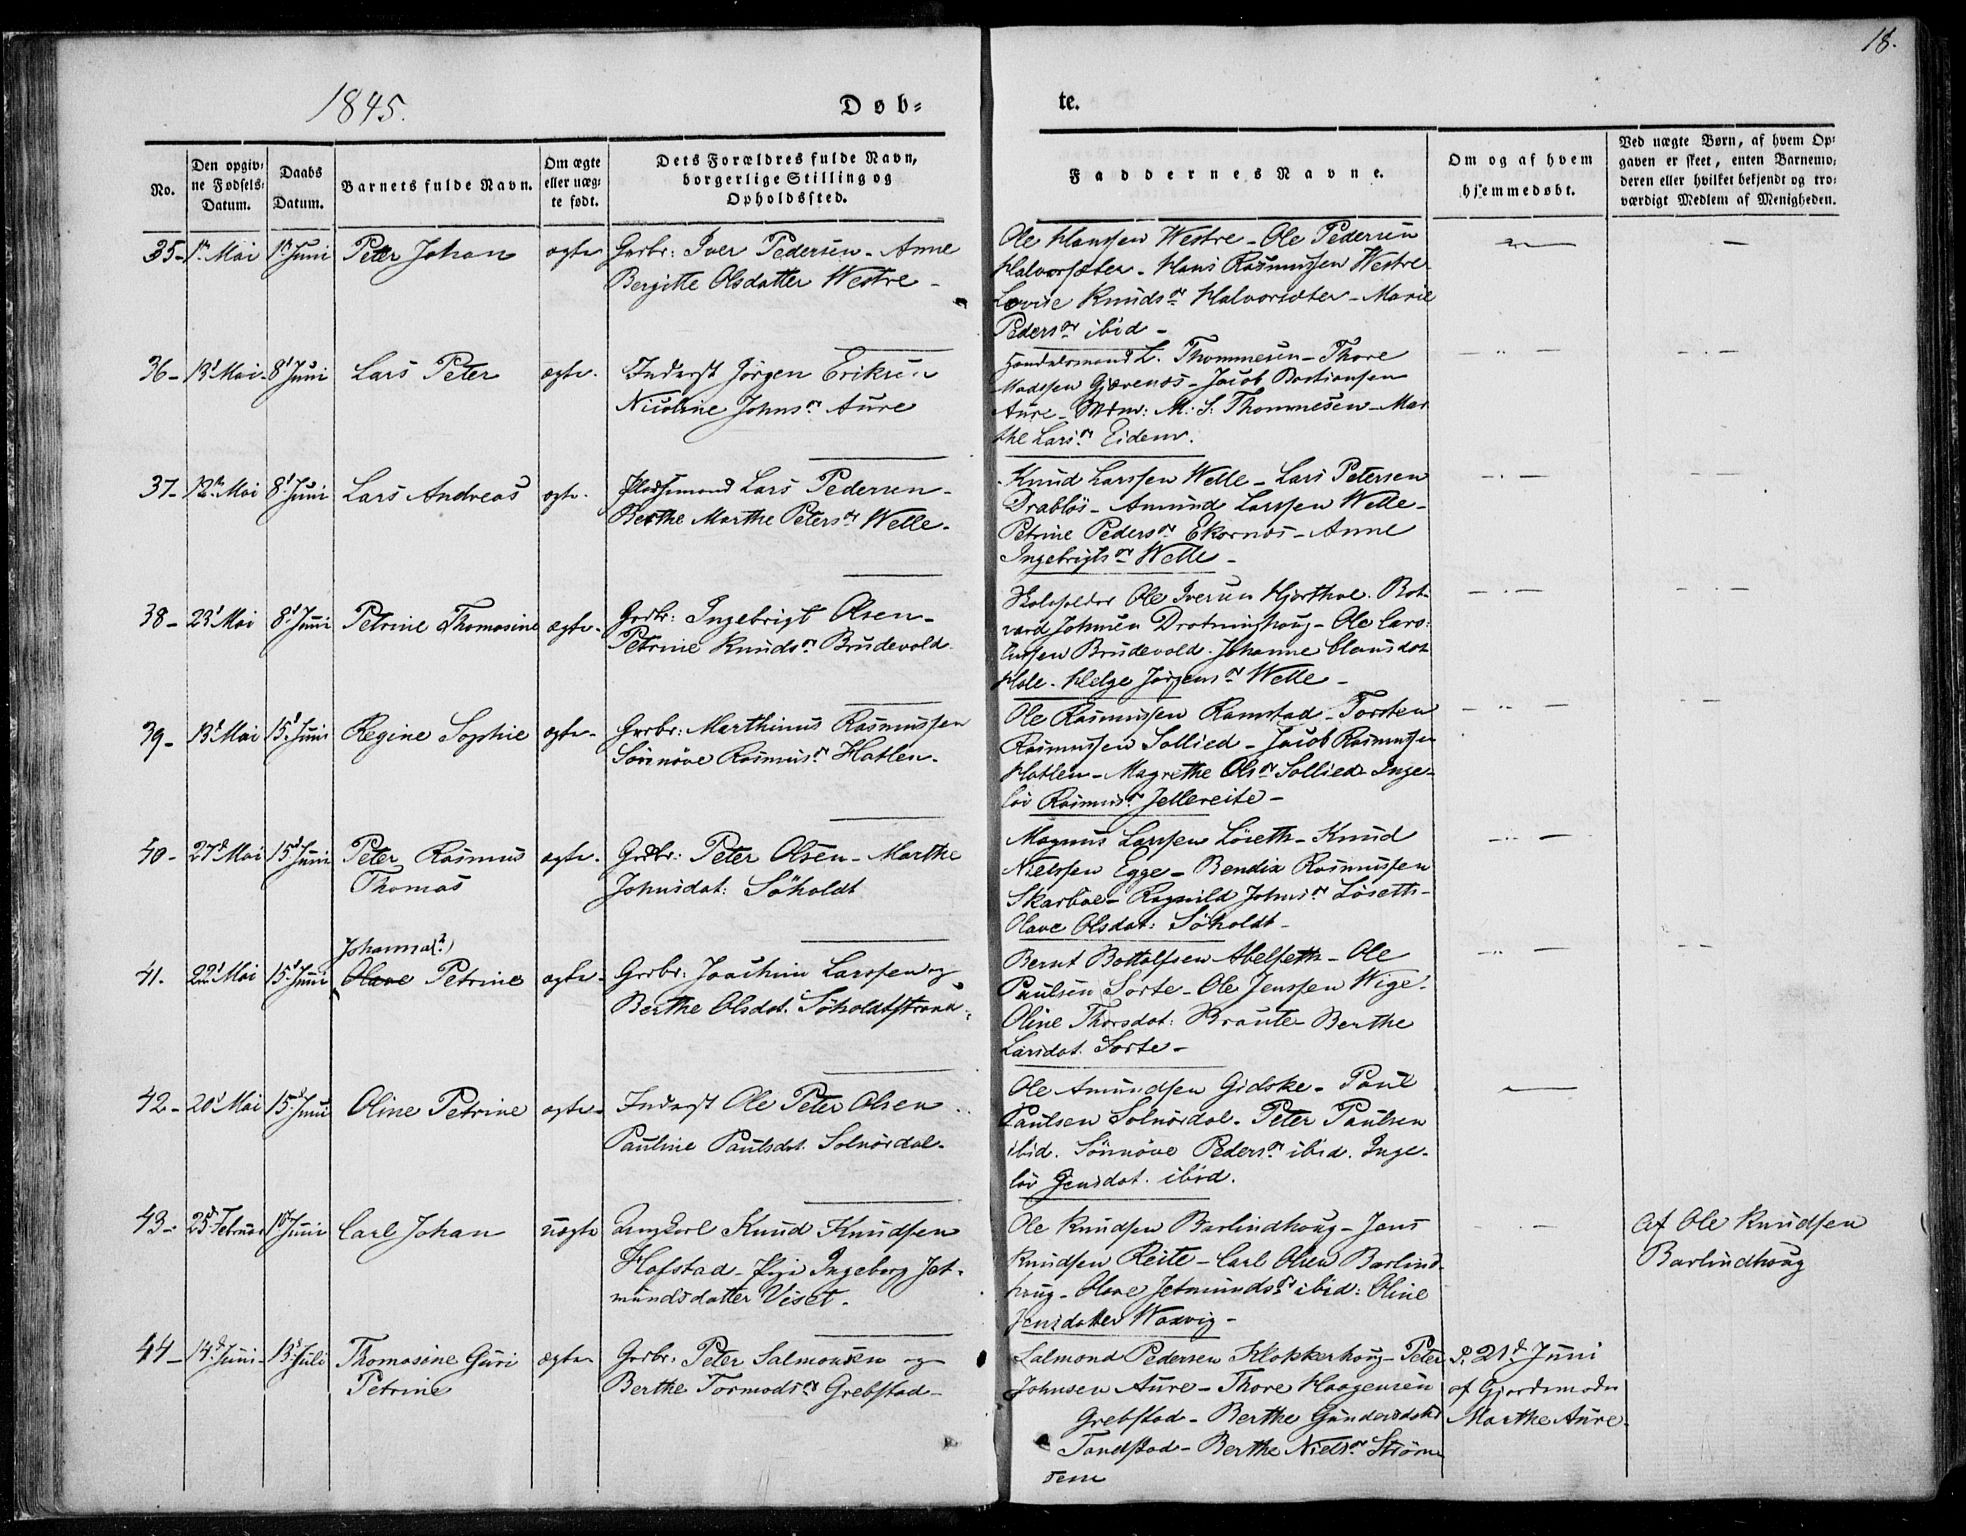 18.
1845.
Døb-
te.
No.
Den opgiv-
ne Fødsels-
Datum.
Daabs
Datum.
Barnets fulde Navn.
Om ægte
eller uæg-
te født.
Dets Forældres fulde Navn,
borgerlige Stilling og
Opholdssted.
Faddernes Navne.
Om og af hvem
hjemmedøbt.
Ved uægte Børn, af hvem Op-
gaven er skeet, enten Barnemo-
deren eller hvilket bekjendt og tro-
værdigt Medlem af Menigheden.
35- 1ste Mai 1ste Juni Peter Johan ægte Grbr: Iver Pedersen - Anne
Bergitte Olsdatter Westre -
Ole Hanssen Westre - Ole Pedersen
Halvorsæter - Hans Rasmussen Westre
Lovise Knudsdr Halvorsæter - Marie
Pedersdr ibid -
36- 13d Mai 8d Juni Lars Peter ægte. Inderst Jörgen Eriksen
Nicoline Johnsdr Aure
Handelsmand L. Thommesen - Thore
Madssen Gjævenæs - Jacob Bastiansen
Aure - Mdm: M: S: Thommesen - Mar
the Larsdr Eidem.
37- 12te Mai 8d Juni Lars Andreas ægte. Pladsemand Lars Pedersen -
Berthe Marthe Petersdr Welle -
Knud Larssen Welle - Lars Petersen
Drabløs - Amund Larssen Welle -
Petrine Pedersdr Ekornæs - Anne
Ingebrigtsdr Welle -
38- 23d Mai 8d Juni Petrine Thomasine ægte - Grdbr: Ingebrigt Olsen -
Petrine Knudsdr Brudevold.
Skoleholder Ole Iversen Hjorthol. Bot-
vard Johnsen Drotninghoug - Ole Caro-
liussen Brudevold. Johanne Clausdat
Hole. Helge Jørgensdr Welle -
39- 13d Mai 15d Juni Regine Sophie ægte - Grdbr: Marthinus Rasmussen
Sönnöve Rasmusdr Hatlen -
Ole Rasmussen Ramstad - Torsten
Rasmussen Sollied - Jacob Rasmussen
Hatlen - Magrethe Olsdr Sollied - Inge-
löv Rasmusdr Jellereite -
40- 27d Mai 15d Juni Peter Rasmus ægte. Grdbr: Peter Olsen - Marthe
Thomas
Johnsdat: Söholdt
Magnus Larssen Löseth - Knud
Nielssen Egge - Bendix Rasmussen
Skarbøe - Ragnild Johnsdr Löseth -
Olave Olsdat: Söholdt -
Johanna(?)
41. 22d Mai 15d Juni Olave Petrine ægte - Grdbr: Joachim Larssen og
Berthe Olsdat: Söholdtstrand.
Bernt Bottolfsen Abelseth - Ole
Paulsen Sorte - Ole Jenssen Wige.
Oline Thorsdat: Braute - Berthe
Larsdat. Sorte -
42- 20d Mai 15d Juni Oline Petrine ægte - Inderst Ole Peter Olsen
Pauline Paulsdat. Solnördal -
Ole Amundsen Gidske - Paul
Paulsen Solnördal - Peter Paulsen
ibid. Sönnöve Pedersdr ibid. Inge-
löv Jensdat. ibid.
43- 25d Februar Juni Carl Johan uægte Ungkarl Knud Knudsen
Hofstad - Pige Ingeborg Jet-
mundsdatter Viset -
Ole Knudsen Barlindhoug - Jens
Knudsen Reite - Carl Olsen Barlind-
houg - Olave Jetmundsdr ibid: Oline
Jensdatter Waxvig -
Af Ole Knudsen
Barlindhoug
44- 14d Juni 13d Juli Thomasine Guri ægte Grdbr: Peter Salmonsen og
Petrine
Berthe Tormodsdr Grebstad -
Salmond Pedersen Klokkerhoug - Peter
Johnsen Aure - Thore Haagensen
Grebstad - Berthe Gundersdatr
Tandstad - Berthe Nielsdr Ström
sem
d. 21d Juni
af Gjordemoder
Marthe Aure -